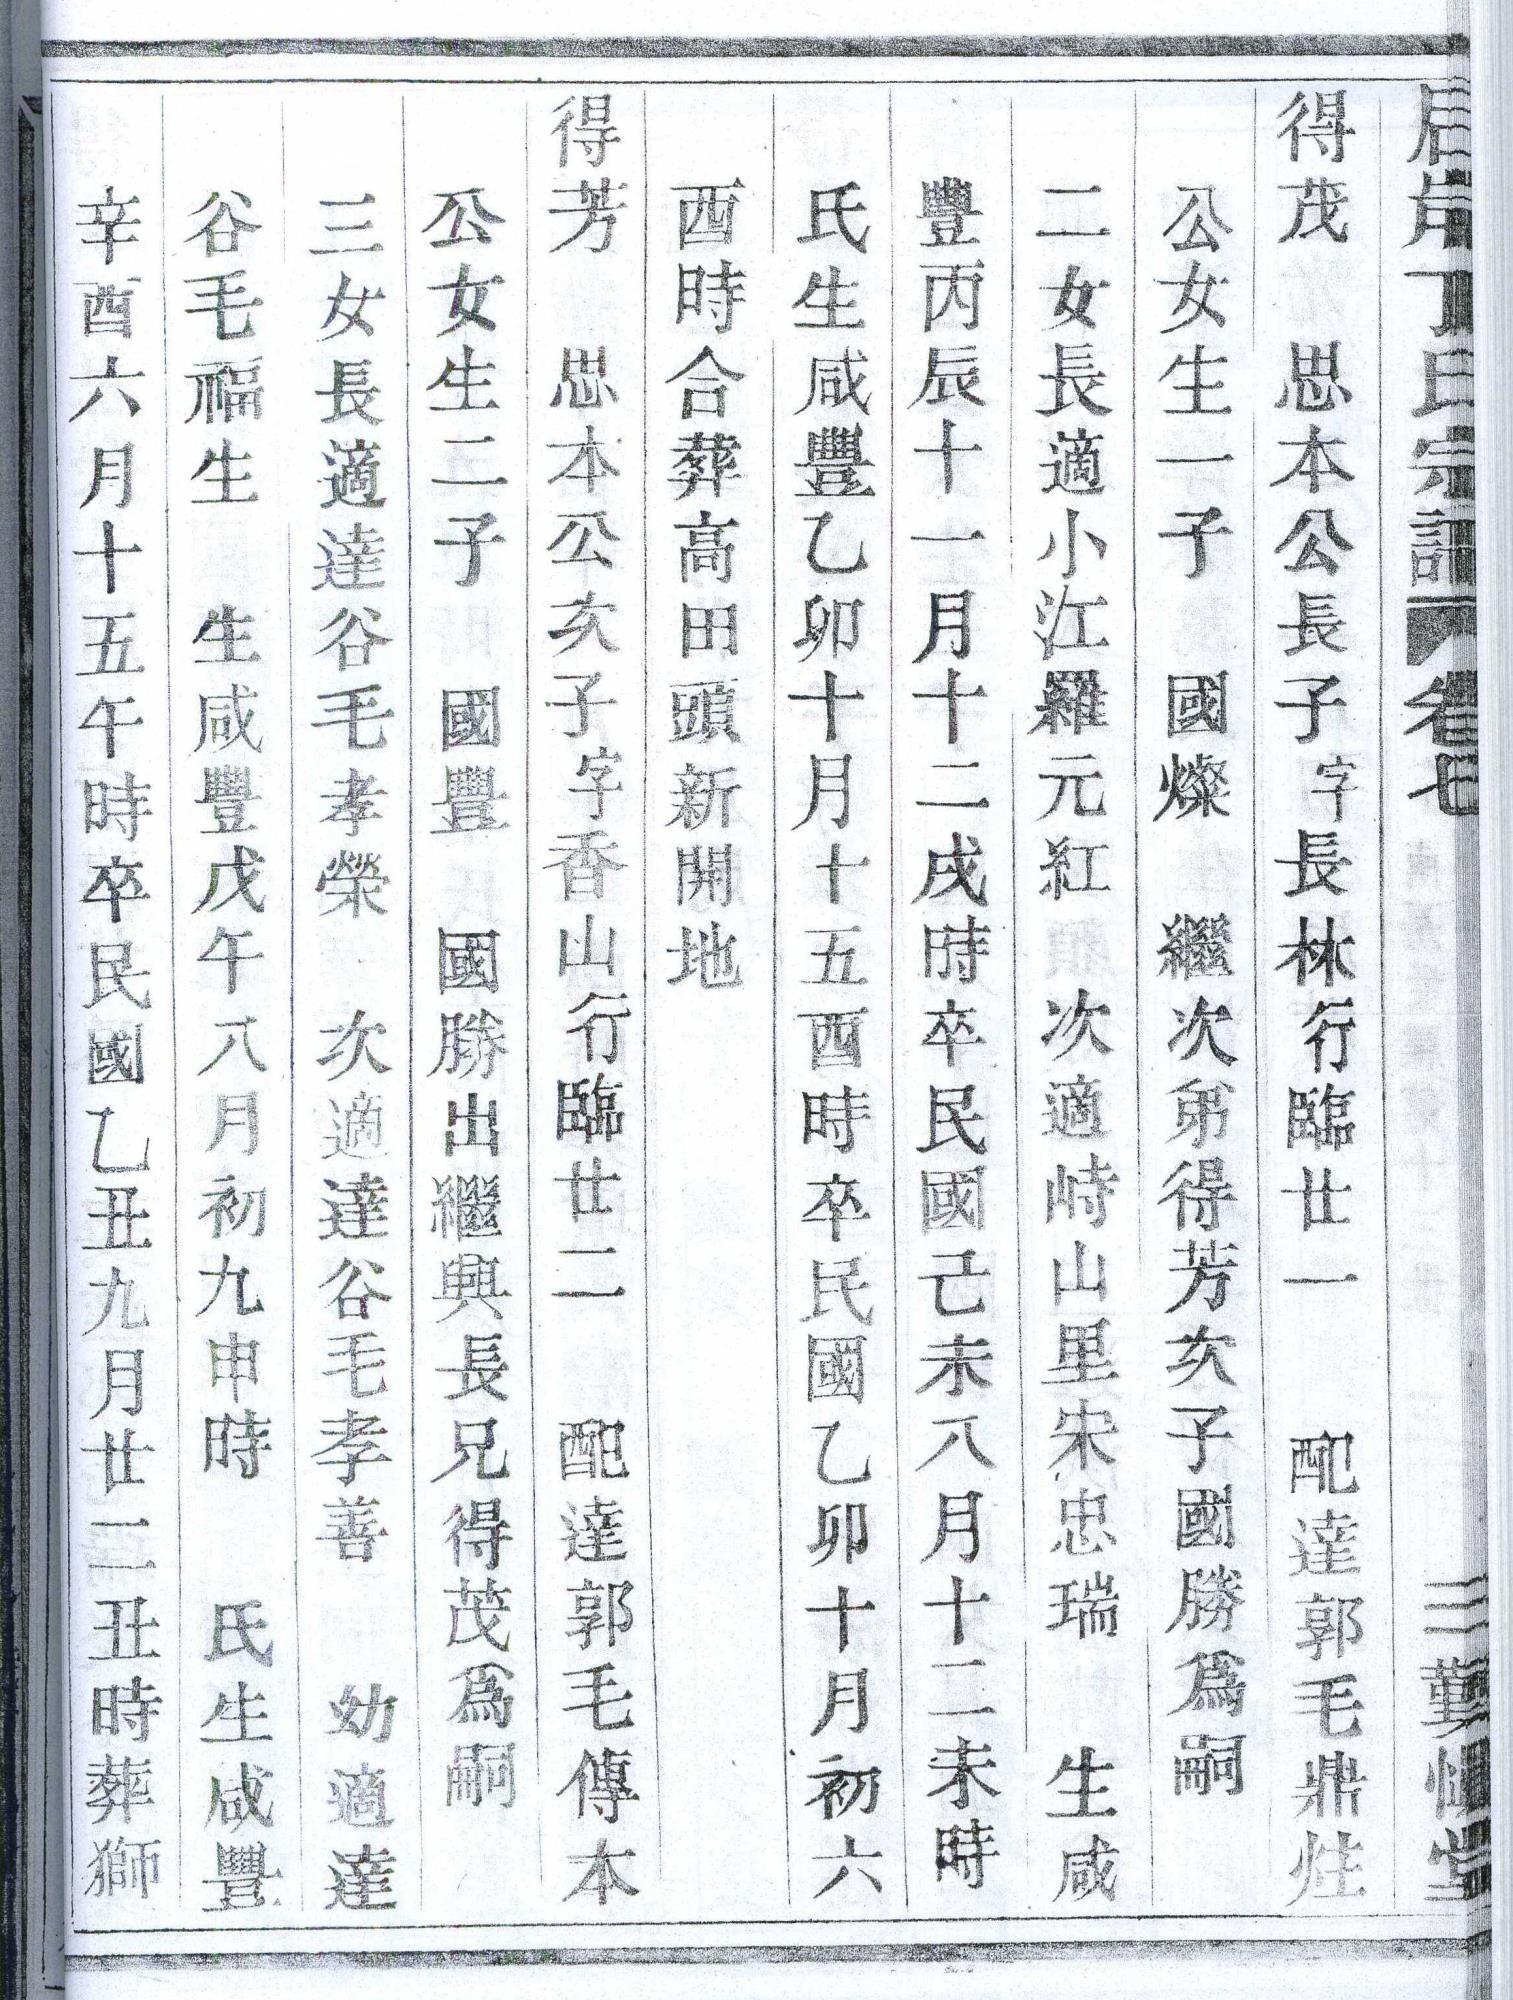 丁氏宗譜 卷七 三 勤慎堂
得茂 思本公長子字長林行臨廿一 配達郭毛鼎烓
公女生一子 國燦 繼次弟得芳次子國勝爲嗣
二女長適小江羅元紅 次適峙山里宋忠瑞 生咸
豐丙辰十一月十二戌時卒民國己未八月十二未時
氏生咸豐乙卯十月十五酉時卒民國乙卯十月初六
酉時合葬高田頭新開地
得芳 思本公次子字香山行臨廿二 配達郭毛傳本
公女生二子 國豐 國勝出繼與長兄得茂爲嗣
三女長適達谷毛孝榮 次適達谷毛孝善 幼適達
谷毛福生 生咸豐戊午八月初九申時 氏生咸豐
辛酉六月十五午時卒民國乙丑九月廿二丑時葬獅